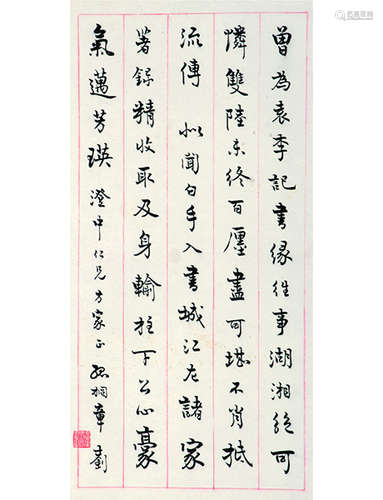 曾為袁李記書緣往事湖湘絕可
憐雙陸未終百廛盡可堪不肖抵
流傳 佀聞白手入書城江左諸家
著錄精收取及身輸柱下公心豪
氣邁芳瑛 澄中仁兄方家正 孤桐章釗